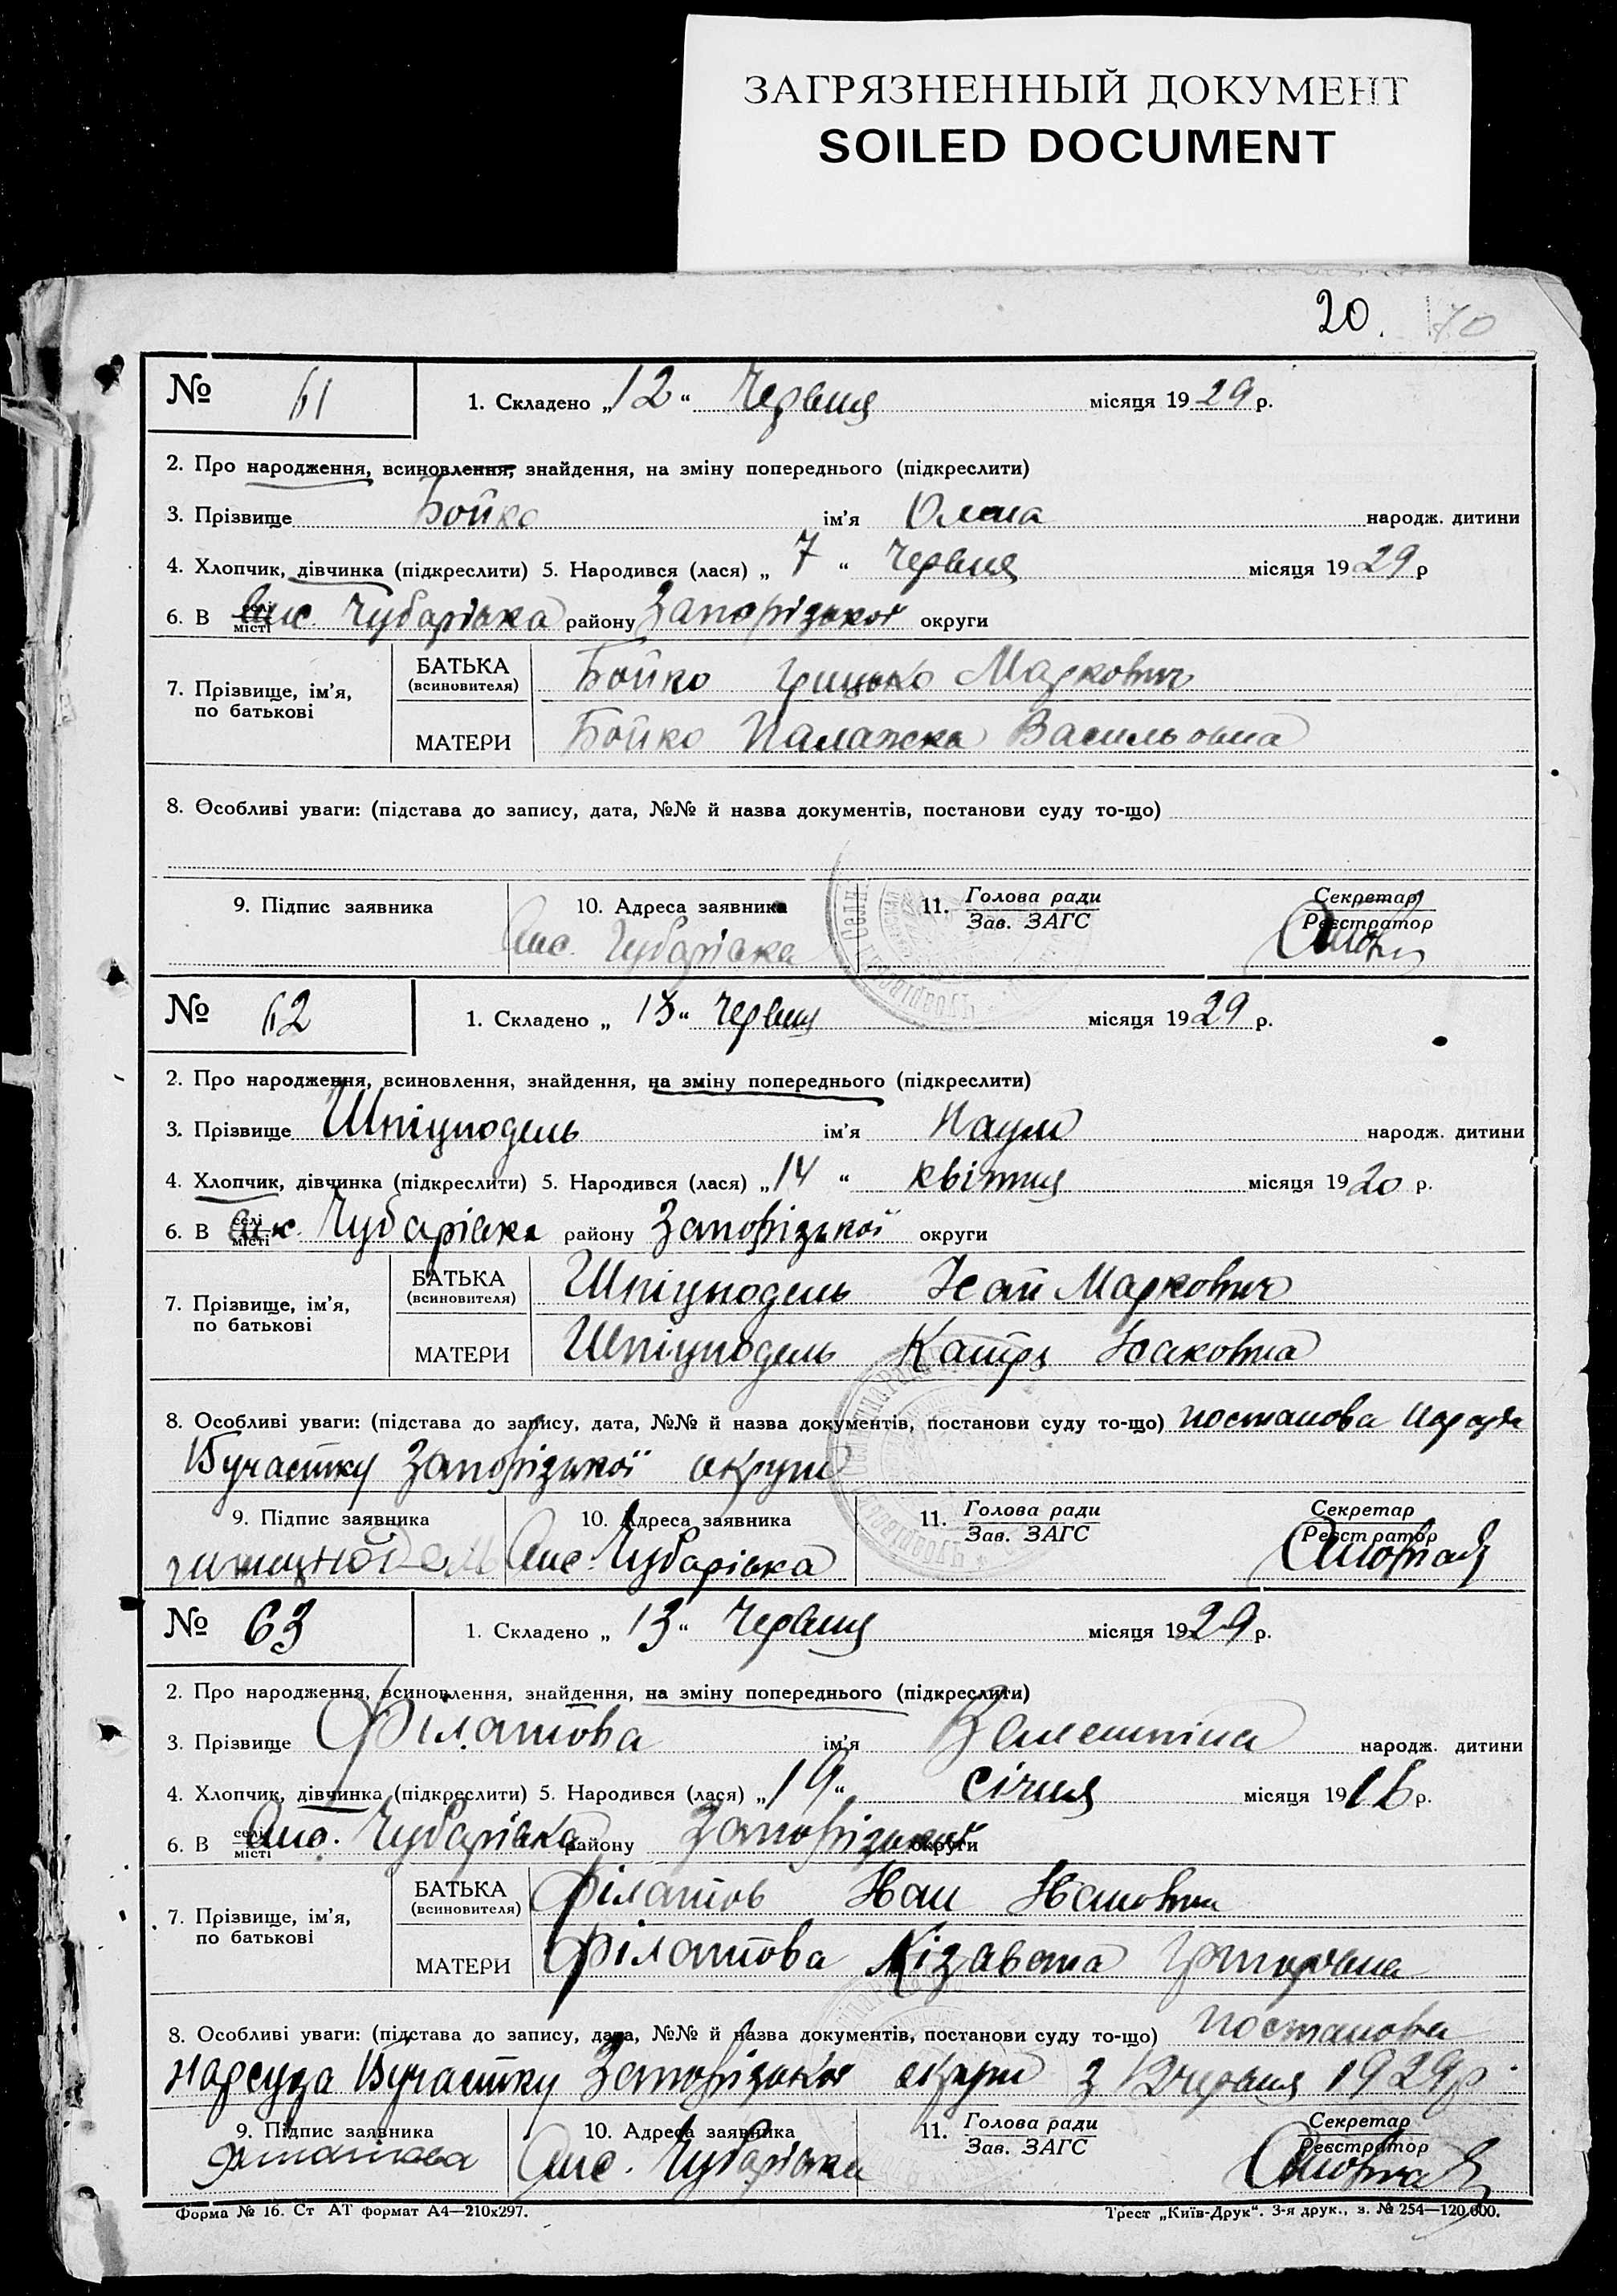 ЗАГРЯЗНЕННЫЙ ДОКУМЕНТ
SOILED DOCUMENT
20. 70
№ 61 1. Складено „12“ Червня місяця 1929 р.
2. Про народження, всиновлення, знайдення, на зміну попереднього (підкреслити)
3. Прізвище Бойко ім'я Олена народж. дитини
4. Хлопчик, дівчинка (підкреслити) 5. Народився (лася) „7“ Червня місяця 1929 р
6. В селі місті Чубарівка району Запорізької округи
7. Прізвище, ім'я, по батькові
БАТЬКА (всиновителя) Бойко Грицько Маркович
МАТЕРИ Бойко Палажка Васильовна
8. Особливі уваги: (підстава до запису, дата, №№ й назва документів, постанови суду то-що)
9. Підпис заявника 10. Адреса заявника 11. Голова ради Секретар
Зав. ЗАГС Реєстратор
Чубарівка
№ 62 1. Складено „13“ Червня місяця 1929 р.
2. Про народження, всиновлення, знайдення, на зміну попереднього (підкреслити)
3. Прізвище Шпіцнодель ім'я Наум народж. дитини
4. Хлопчик, дівчинка (підкреслити) 5. Народився (лася) „14“ квітня місяця 1920 р.
6. В селі місті Чубарівка району Запорізької округи
7. Прізвище, ім'я, по батькові
БАТЬКА (всиновителя) Шпіцнодель Ісай Маркович
МАТЕРИ Шпіцнодель Катря Ісаковна
8. Особливі уваги: (підстава до запису, дата, №№ й назва документів, постанови суду то-що) постанова Нарсуда
участку Запорізької округи
9. Підпис заявника 10. Адреса заявника 11. Голова ради Секретар
Зав. ЗАГС Реєстратор
Чубарівка
№ 63 1. Складено „13“ Червня місяця 1929 р.
2. Про народження, всиновлення, знайдення, на зміну попереднього (підкреслити)
3. Прізвище Філатова ім'я Валентіна народж. дитини
4. Хлопчик, дівчинка (підкреслити) 5. Народився (лася) „19“ січня місяця 1916 р.
6. В селі місті Чубарівка району Запорізької округи
7. Прізвище, ім'я, по батькові
БАТЬКА (всиновителя) Філатов Іван Іванович
МАТЕРИ Філатова Лізавета Григорівна
8. Особливі уваги: (підстава до запису, дата, №№ й назва документів, постанови суду то-що) постанова
нарсуда участку Запорізької округи з 12 червня 1929 р.
9. Підпис заявника 10. Адреса заявника 11. Голова ради Секретар
Зав. ЗАГС Реєстратор
Філатова Чубарівка
Форма № 16. Ст АТ формат А4—210x297. Трест „Київ-Друк“. 3-я друк., з. № 254—120.000.